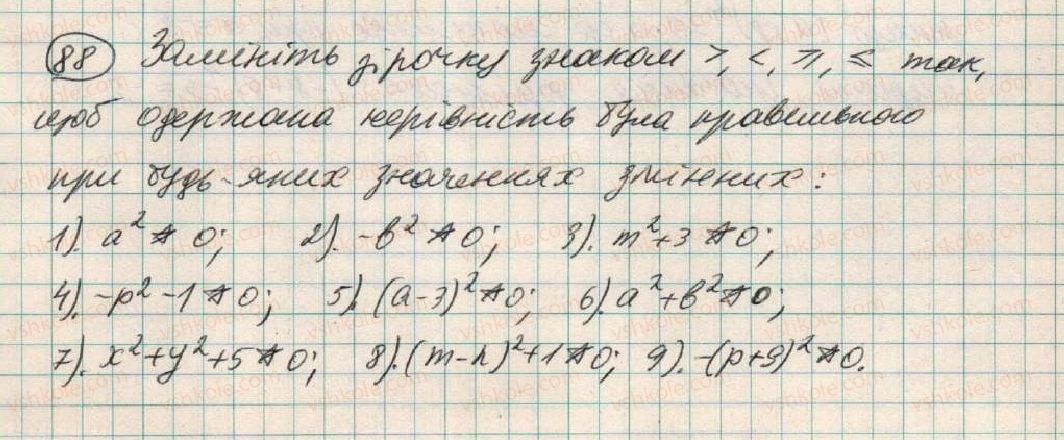 88 Замініть зірочку знаком >, <, ≥, ≤ так,
щоб одержана нерівність була правильною
при будь-яких значеннях змінних:
1). a² * 0; 2). -b² * 0; 3). m²+3 * 0;
4). -p²-1 * 0; 5). (a-3)² * 0; 6). a²+b² * 0;
7). x²+y²+5 * 0; 8). (m-n)²+1 * 0; 9). -(p+9)² * 0.